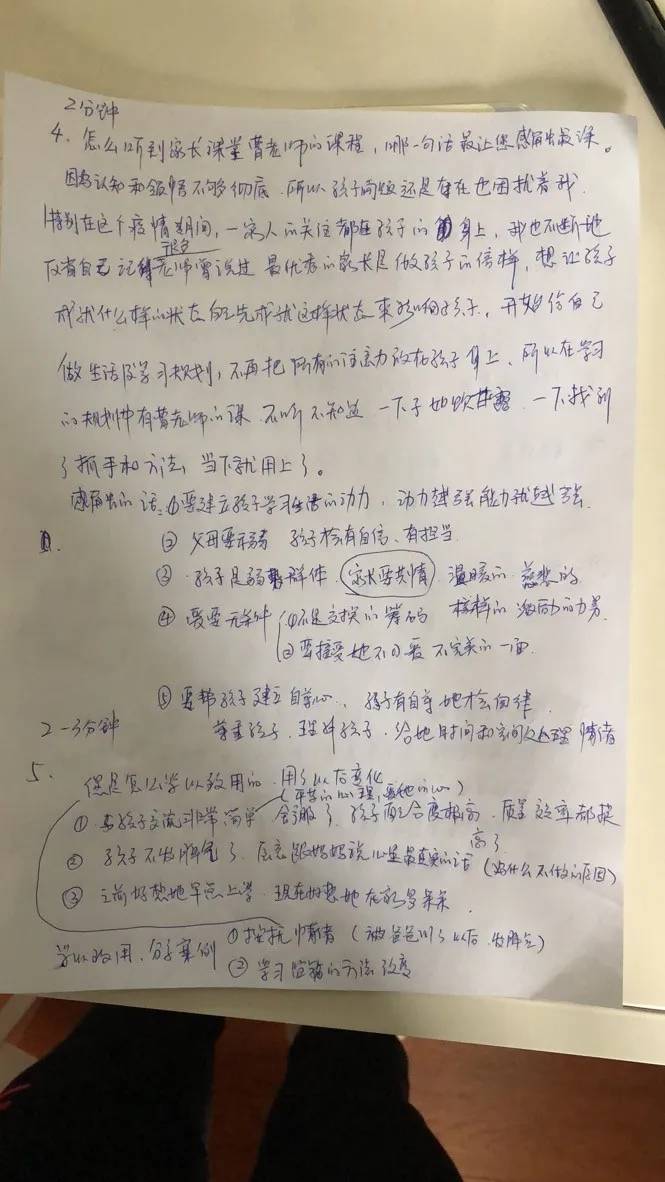 2分钟
4、怎么听到家长课堂曹老师的课程，哪一句话最让您感触最深。
因为认知和领悟不够彻底，所以孩子问题还是存在也困扰着我.
特别在这个疫情期间，一家人的关注都在孩子的身上，我也不断地
很多
反省自己记得老师曾说过 最优秀的家长是做孩子的榜样，想让孩子
成就什么样的状态自己先成就这样状态来影响孩子，开始给自己
做生活及学习规划，不再把所有的注意力放在孩子身上、所以在学习
的规划中有曹老师的课 不听不知道 一下子如饮甘露 一下找到
了抓手和方法 当下就用上了。
感触的话：①要建立孩子学习生活的动力，动力越强能力就越强.
② 父母要示弱 孩子才会有自信、有担当
③ 孩子是弱势群体 家长要共情 温暖的 慈悲的
④ 爱要无条件 ①不是交换的筹码 榜样的 激励的力量
②要接受她不可爱 不完美的一面.
⑤ 要帮孩子建立自尊心、孩子有自尊她才会自律
2-3分钟 尊重孩子、理解孩子、给她时间和空间处理情绪
5、您是怎么学以致用的 用了以后变化
① 与孩子交流非常简单 孩子配合度极高、质量效率都提
高了
② 孩子不发脾气了、愿意跟妈妈说心里最真实的话（为什么不做的原因）
③ 之前好想她早点上学 现在好想她在家多呆呆
学以致用、分享案例 ①控抗情绪（被爸爸训了以后 发脾气）
② 学习 的方法 效度